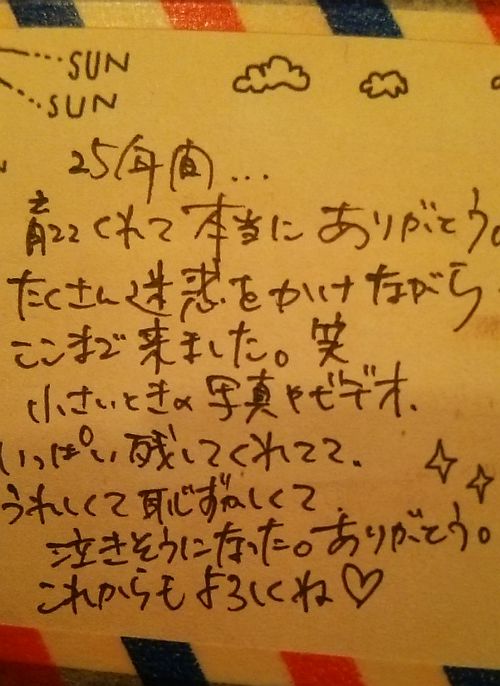 SUN
SUN
25年間...
育ててくれて本当にありがとう。
たくさん迷惑をかけながら
ここまで来ました。笑
小さいときの写真やビデオ、
いっぱい残してくれてて、
うれしくて恥ずかしくて
泣きそうになった。ありがとう。
これからもよろしくね♡